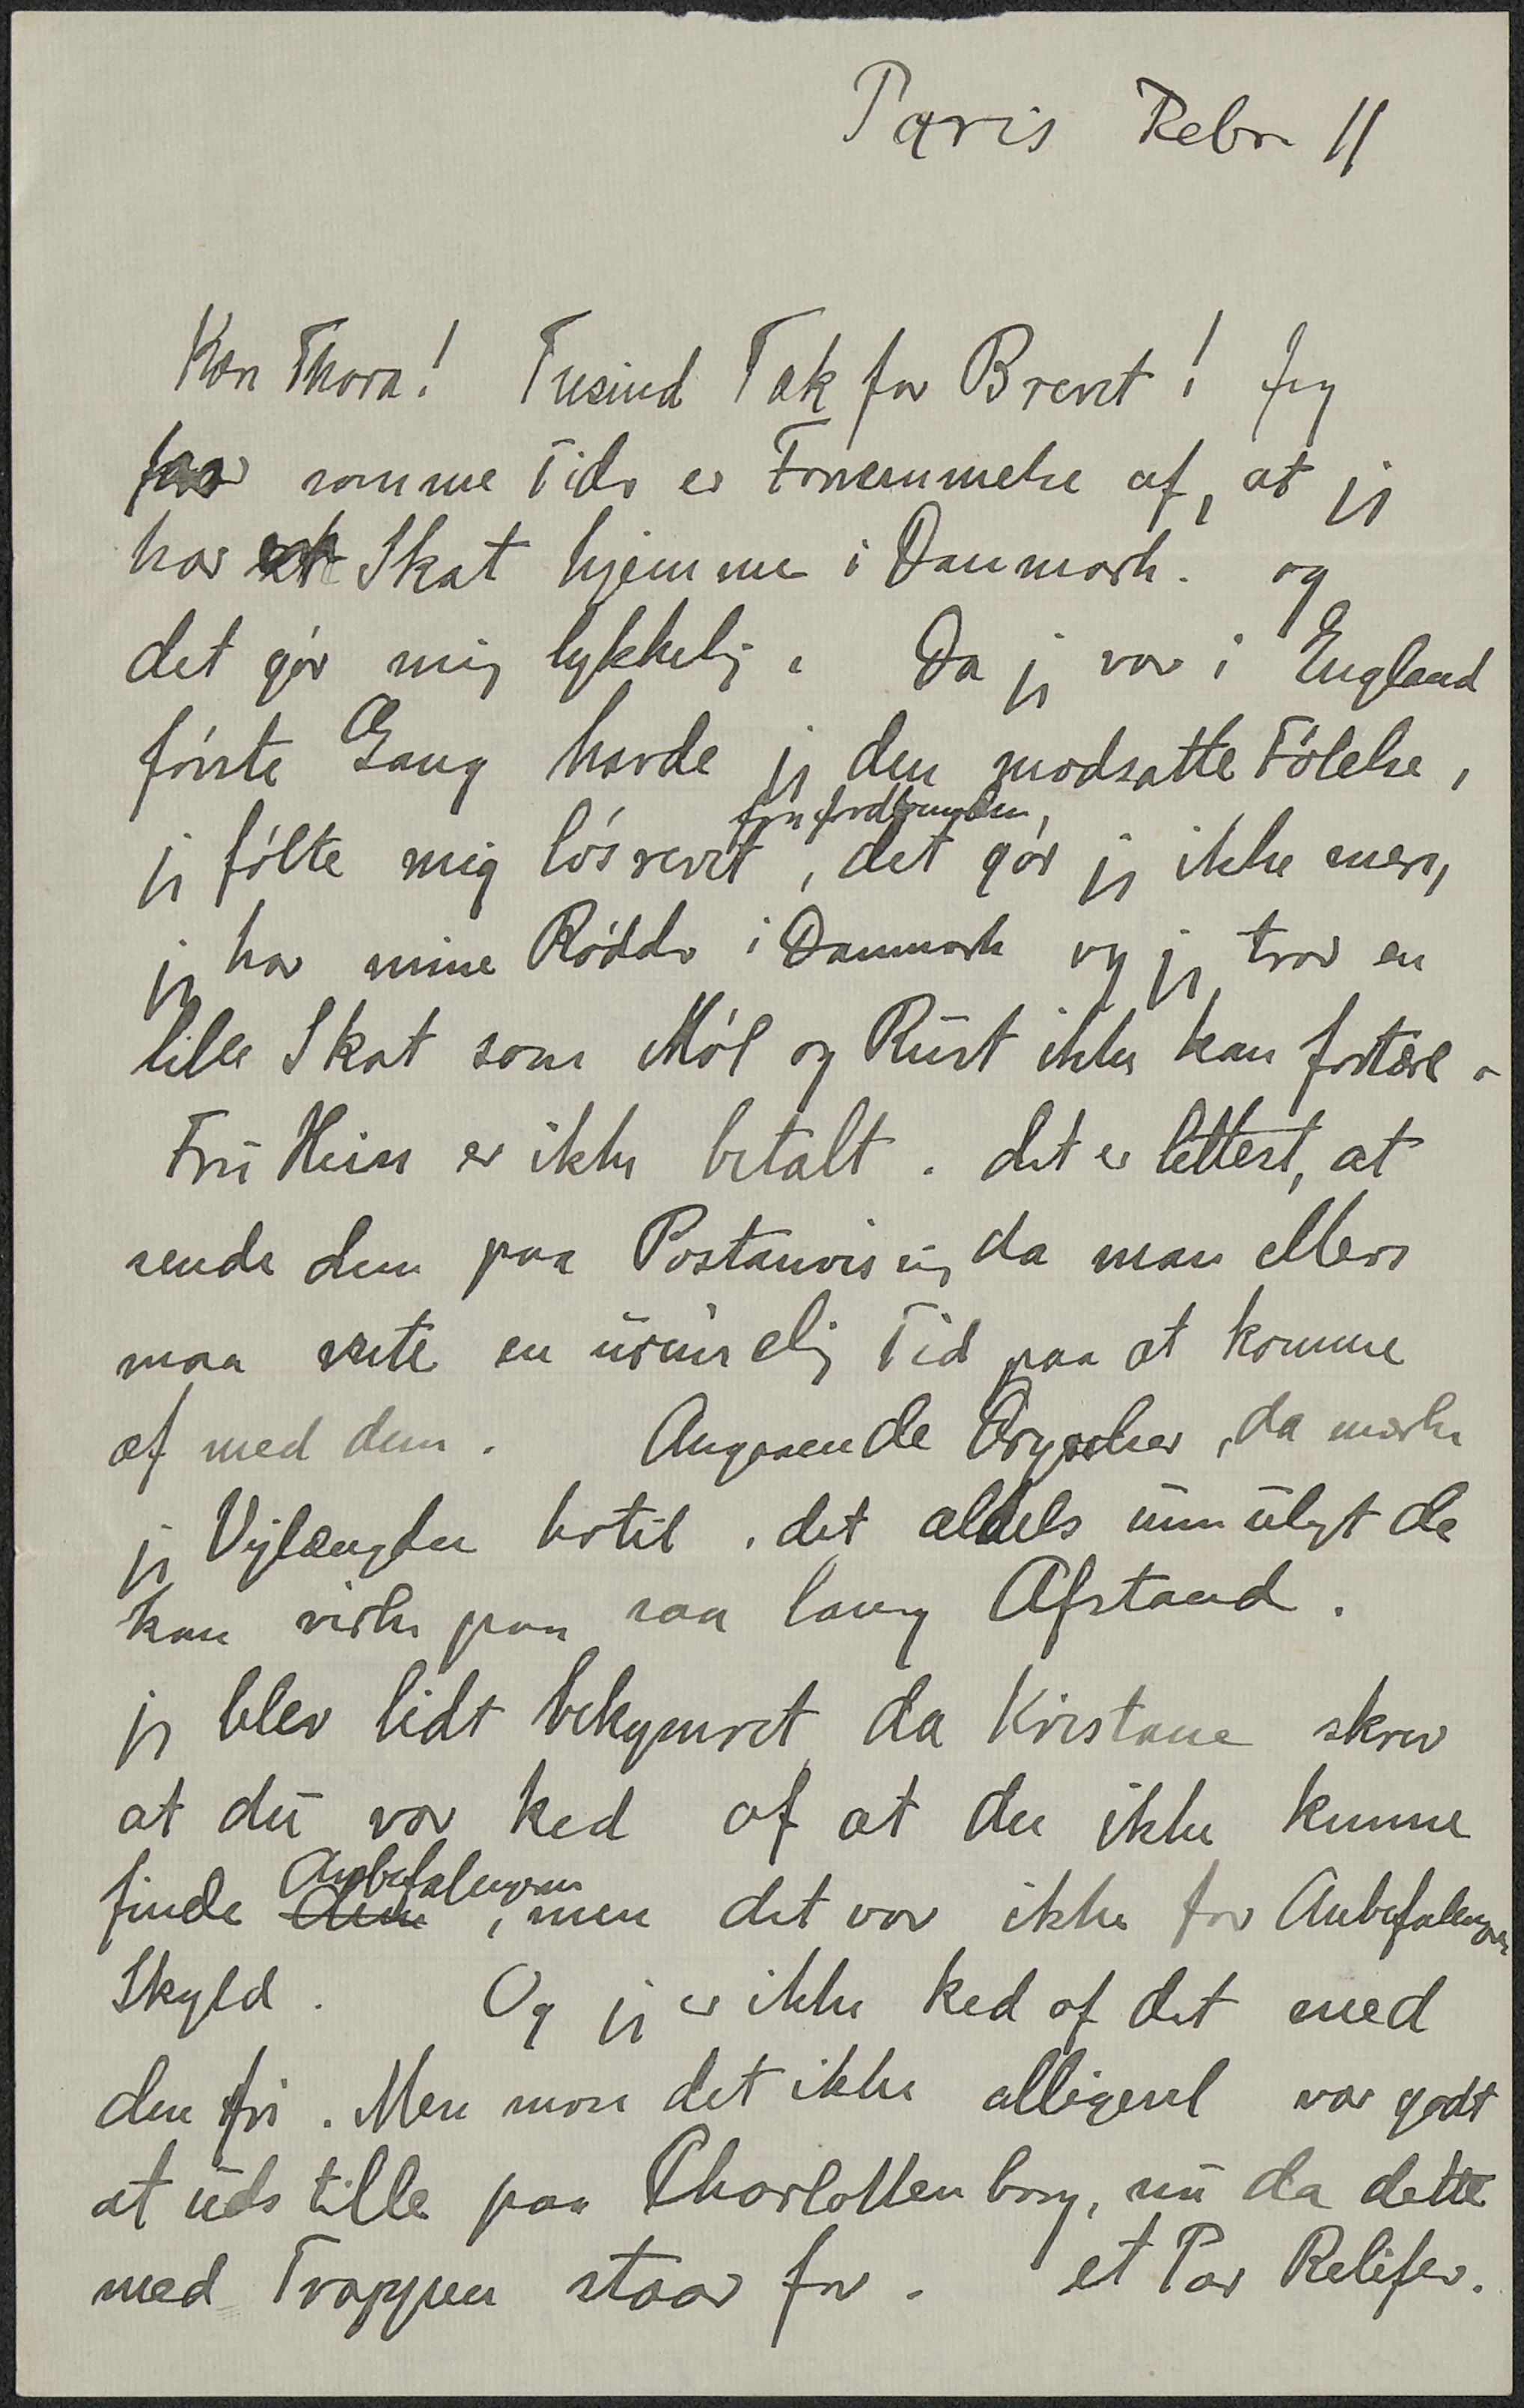 Paris Febr 11
Kære Thora! Tusind Tak for Brevet! Jeg
faar somme Tider en Fornemmelse af, at jeg
har en Skat hjemme i Danmark. og
det gør mig lykkelig. Da jeg var i England
første Gang havde jeg den modsatte Følelse,
jeg følte mig løsrevet fra fortrængden, det gør jeg ikke mere,
jeg har mine Rødder i Danmark og jeg tror en
lille Skat som Møl og Rust ikke kan fortære.
Fru Hein er ikke betalt. det er lettest, at
sende dem paa Postanvisning da man ellers
maa vente en urimelig Tid paa at komme
af med dem. Angaaende, da mærker
jeg Vejlængden hertil. det aldeles umuligt de
kan virke paa saa lang Afstand.
jeg blev lidt bekymret da Kristane skrev
at du var ked af at du ikke kunne
finde Anbefalingen, men det var ikke for Anbefalingens
Skyld. Og jeg er ikke ked af det med
den fri. Men mon det ikke alligevel var godt
at udstille paa Charlottenborg, nu da dette
med Trappen staar for. et Par Relifer.